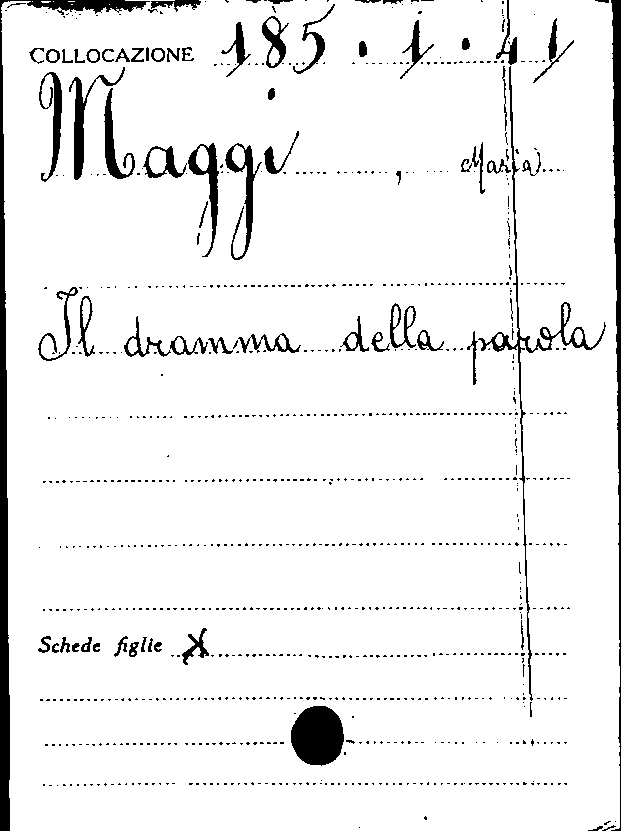 COLLOCAZIONE 185.1.41
Maggi, Maria
Il dramma della parola
Schede figlie X